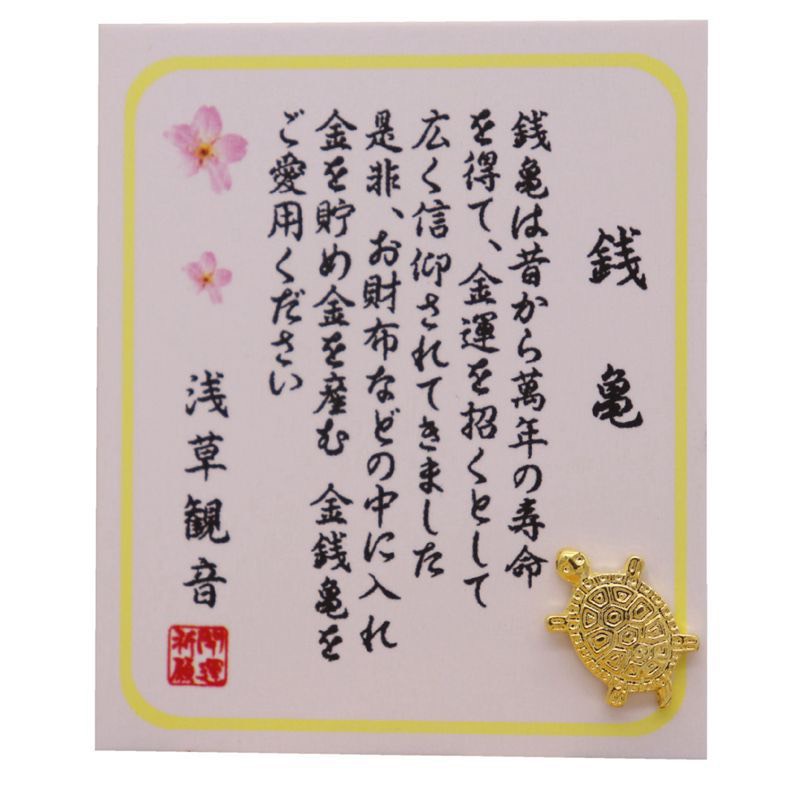 銭亀
銭亀は昔から萬年の寿命
を得て、金運を招くとして
広く信仰されてきました
是非、お財布などの中に入れ
金を貯め金を産む 金銭亀を
ご愛用ください
浅草観音
開運
祈願